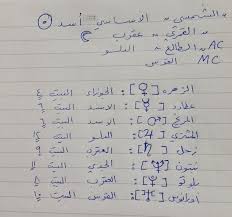 الشمسي - الاساسي أسد ☉
القمري - عقرب ☾
AC الطالع - الدلو
MC القوس
الزهره [♀]: الجوزاء البيت ٤
عطارد [☿]: الاسد البيت ٦
المريخ [♂]: الاسد البيت ٦
المشتري [♃]: الدلو البيت
زحل [♄]: العقرب البيت ٩
نبتون [♆]: الجدي البيت
بلوتو [♇]: العقرب البيت
أورانوس [♅]: القوس البيت